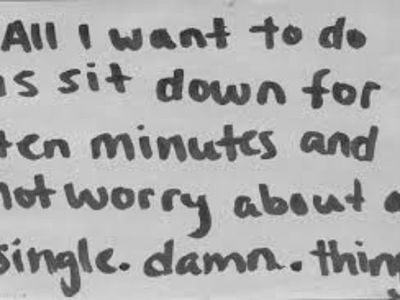 All I want to do
is sit down for
ten minutes and
not worry about a
single. damn. thing